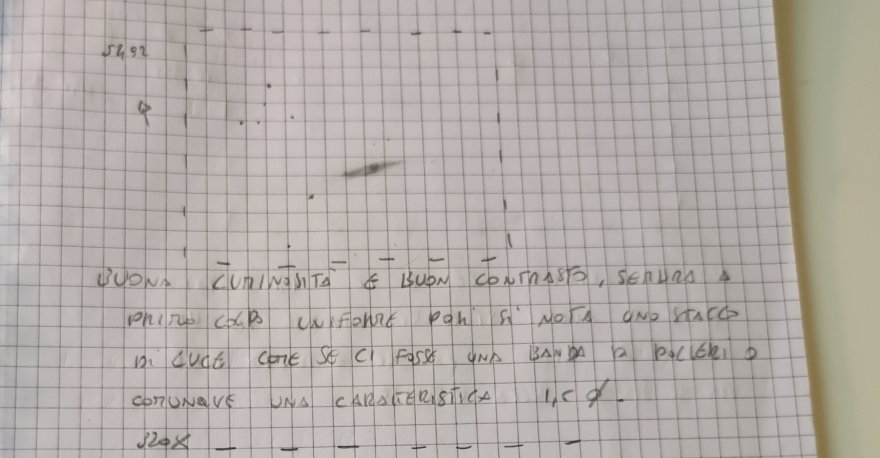 5492
BUONA LUMINOSITÀ E BUON CONTRASTO, SEMBRA A
PRIMO COLPO UNIFORME POI SI NOTA UNO STACCO
DI LUCE COME SE CI FOSSE UNA BANDA DI POLVERI O
COMUNQUE UNA CARATTERISTICA
320X